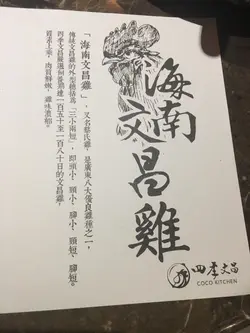 海南
文昌雞
「海南文昌雞」、又名慈氏雞，是廣東八大優良雞種之一，
傳統文昌雞的外型總括為「三小兩短」，即頭小、頸小、腳小、頸短、腳短。
四季文昌嚴選飼養期達一百五十至一百八十日的文昌雞，
質素上乘，肉質鮮嫩，雞味濃郁。
四季文昌
COCO KITCHEN